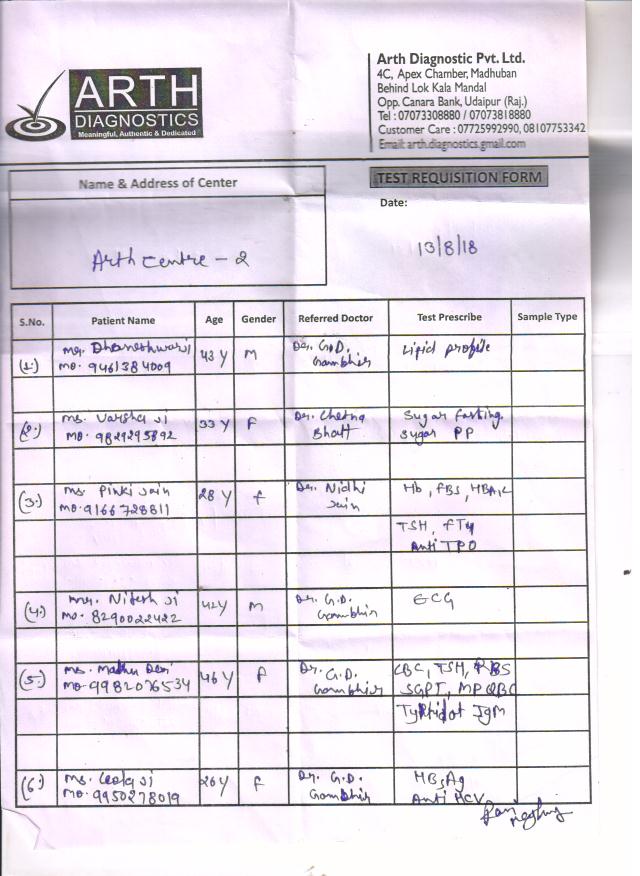 ARTH
DIAGNOSTICS
Meaningful, Authentic & Dedicated
Arth Diagnostic Pvt. Ltd.
4C, Apex Chamber, Madhuban
Behind Lok Kala Mandal
Opp. Canara Bank, Udaipur (Raj.)
Tel : 07073308880 / 07073818880
Customer Care : 07725992990, 08107753342
Email: arth.diagnostics.gmail.com
Name & Address of Center
TEST REQUISITION FORM
Date:
Arth centre - 2
13/8/18
S.No. Patient Name Age Gender Referred Doctor Test Prescribe Sample Type
(1.) Mr. Dhaneshwar ji 43 Y M Dr. G.D. Lipid profile
MO. 9461384009 Gambhir
(2.) Ms. Varsha ji 33 Y F Dr. Chetna Sugar fasting
MO. 9829295892 Bhatt Sugar PP
(3.) Ms. Pinki Jain 28 Y F Dr. Nidhi Hb, FBS, HBA1C
MO. 9166728811 Jain
TSH, FT4
Anti TPO
(4.) Mr. Nitesh ji 42Y M Dr. G.D. ECG
MO. 8290022422 Gambhir
(5.) Ms. Madhu Devi 46 Y F Dr. G.D. CBC, TSH, RBS
MO. 9982076534 Gambhir SGPT, MP QBC
Typhidot IgM
(6.) Ms. ji 26 Y F Dr. G.D. HBsAg
MO. 9950278019 Gambhir Anti HCV